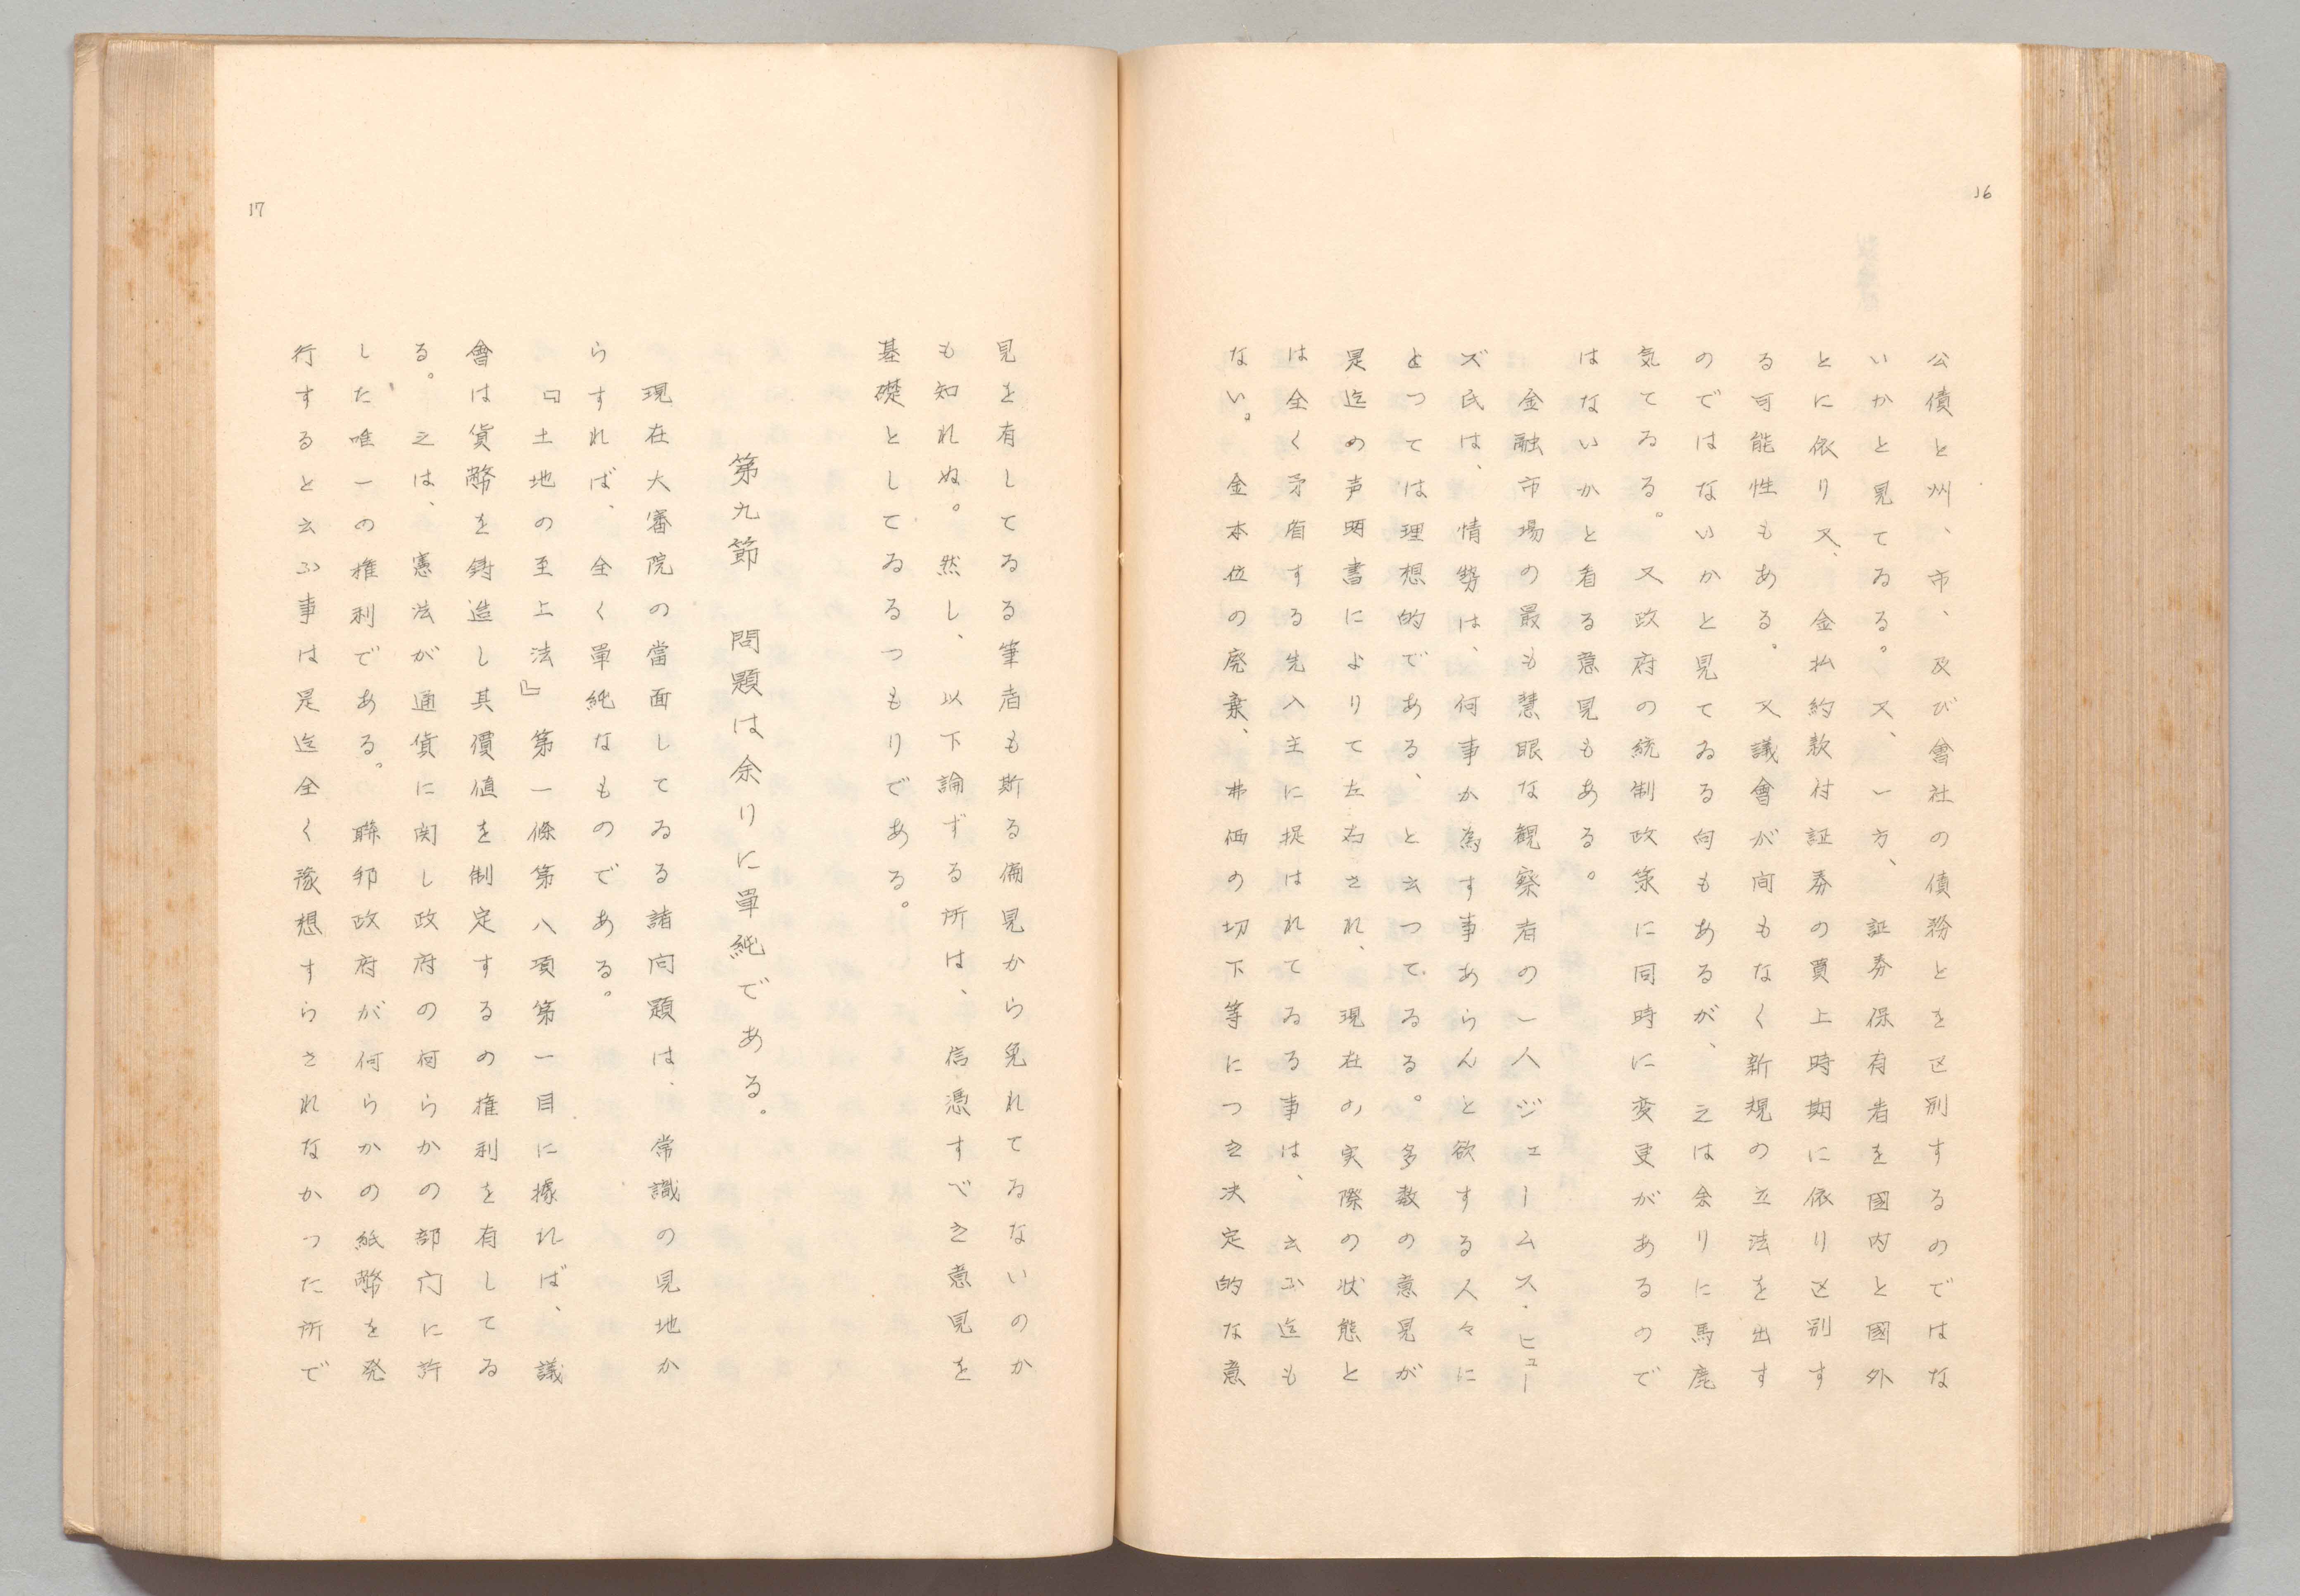 16
公債と州、市、及び會社の債務とを区別するのではな
いかと見てゐる。又、一方、証券保有者を國内と國外
とに依り又、金払約款付証券の買上時期に依り区別す
る可能性もある。又議會が间もなく新規の立法を出す
のではないかと見てゐる向もあるが、之は余りに馬鹿
気てゐる。又政府の統制政策に同時に変更があるので
はないかと看る意見もある。
金融市場の最も慧眼な観察者の一人ジェームス・ヒュー
ズ氏は、情勢は、何事か為す事あらんと欲する人々に
とつては理想的である、と云つてゐる。多数の意見が
是迄の声明書によりて左右され、現在の実際の状態と
は全く矛盾する先入主に捉はれてゐる事は、云ふ迄も
ない。金本位の廃棄、弗価の切下等につき決定的な意
17
見を有してゐる筆者も斯る偏見から免れてゐないのか
も知れぬ。然し、以下論ずる所は、信憑すべき意見を
基礎としてゐるつもりである。
第九節 問題は余りに單純である。
現在大審院の當面してゐる諸问題は、常識の見地か
らすれば、全く單純なものである。
『土地の至上法』第一條第八項第一目に據れば、議
會は貨幣を鋳造し其價値を制定するの権利を有してゐ
る。之は、憲法が通貨に関し政府の何らかの部门に許
した唯一の権利である。聯邦政府が何らかの紙幣を発
行すると云ふ事は是迄全く豫想すらされなかつた所で